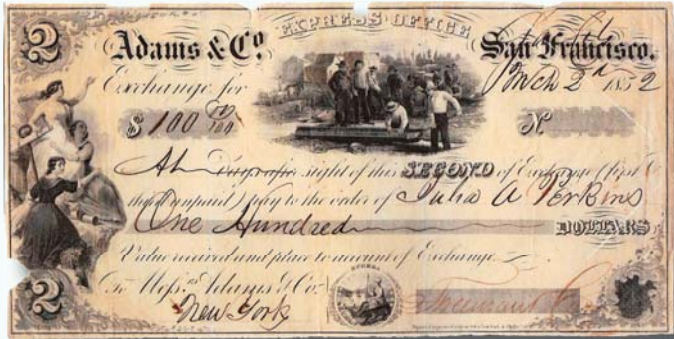 EXPRESS OFFICE
2 Adams & Co. San Francisco.
Exchange for March 2d 1852
$ 100 00/100 No
At sight of this SECOND of Exchange (first
unpaid) pay to the order of Julia A Perkins
One Hundred DOLLARS
Value received and place to account of Exchange
To Mess.rs Adams & Co.
2 New York
EUREKA